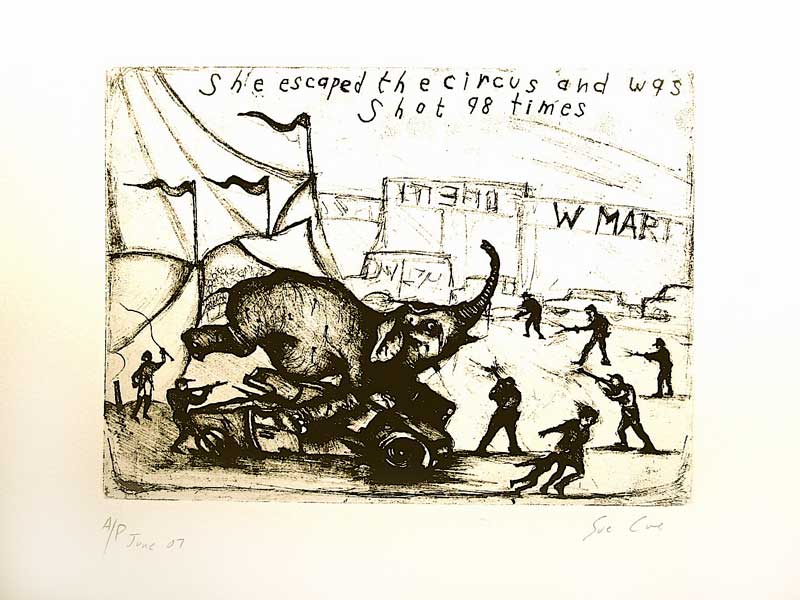 She escaped the circus and was
Shot 98 times
W MART
A/P June 07
Sue Coe